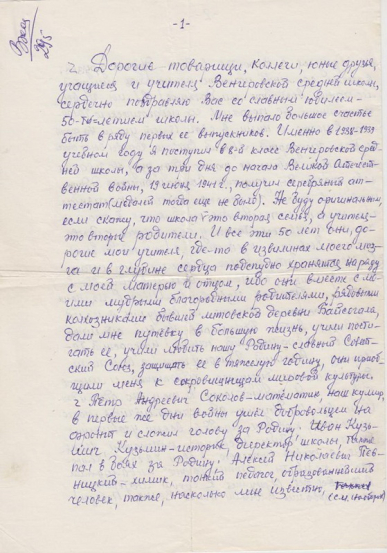 -1-
Дорогие товарищи, коллеги, юные друзья,
учащиеся и учителя Венгеровской средней школы,
сердечно поздравляю Вас со славным юбилеем-
50-тилетием школы. Мне выпало большое счастье
быть в ряду первых её выпускников. Именно в 1938-1939
учебном году я поступил в 8-й класс Венгеровской сред
ней школы, а за три дня до начала Великой Отечест-
венной войны, 19 июня 1941 г., получил серебряный ат-
тестат (медалей тогда еще не было). Не буду оригинален,
если скажу, что школа это вторая семья, а учителя-
это вторые родители. И все эти 50 лет они, до-
рогие мои учителя, где-то в извилинах моего моз-
га и в глубине сердца подспудно хранятся наряду
с моей матерью и отцом, ибо они вместе с мо-
ими мудрыми благородными родителями, рядовыми
колхозниками бывшей литовской деревни Байсогала,
дали мне путёвку в большую жизнь, учили пости-
гать её, учили любить нашу Родину-славный Совет-
ский Союз, защищать её в тяжелую годину, они приоб-
щили меня к сокровищницам мировой культуры.
Пётр Андреевич Соколов-математик, наш кумир,
в первые же дни войны ушёл добровольцем на
фронт и сложил голову за Родину. Иван Кузь-
мич Кузьмин-историк, директор школы, также
пал в боях за Родину. Алексей Николаевич Пев-
ницкий-химик, тонкий педагог, образованнейший
человек, также, насколько мне известно,
(см. на обороте)